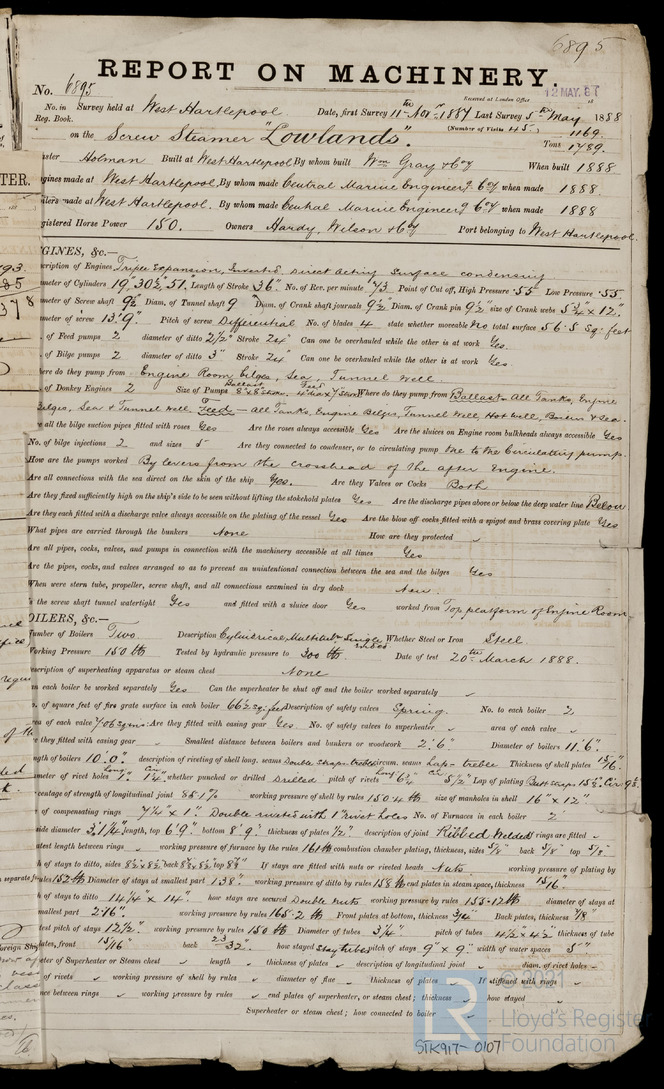 6895
REPORT ON MACHINERY.
No. 6895
Received at London Office 12 MAY. 88 18
No. in Survey held at West Hartlepool Date, first Survey 11th Novr 1887 Last Survey 5th May 1888
Reg. Book. (Number of Visits 45)
on the Screw Steamer "Lowlands". Tons 1169. 1789.
Holman Built at West Hartlepool By whom built Wm Gray & Coy When built 1888
gines made at West Hartlepool, By whom made Central Marine Engineerg Coy when made 1888
made at West Hartlepool. By whom made Central Marine Engineerg Coy when made 1888
gistered Horse Power 150. Owners Hardy, Wilson & Coy Port belonging to West Hartlepool.
GINES, &c.—
scription of Engines Triple Expansion, Inverted, Direct acting Surface condensing
meter of Cylinders 19", 30½", 51", Length of Stroke 36". No. of Rev. per minute 73 Point of Cut off, High Pressure .55 Low Pressure .55
meter of Screw shaft 9½ Diam. of Tunnel shaft 9" Diam. of Crank shaft journals 9½" Diam. of Crank pin 9½" size of Crank webs 5¾" x 12".
meter of screw 13'. 9". Pitch of screw Differential No. of blades 4 state whether moveable No total surface 56.5 sq. feet
of Feed pumps 2 diameter of ditto 2½" Stroke 24" Can one be overhauled while the other is at work Yes
of Bilge pumps 2 diameter of ditto 3" Stroke 24" Can one be overhauled while the other is at work Yes
ere do they pump from Engine Room bilges, Sea, Tunnel Well.
of Donkey Engines 2 Size of Pumps Ballast Feed Where do they pump from Ballast – All Tanks, Engine
Bilges, Sea & Tunnel Well. Feed – All Tanks, Engine Bilges, Tunnel Well, Hot Well, Boilers & Sea.
re all the bilge suction pipes fitted with roses Yes Are the roses always accessible Yes Are the sluices on Engine room bulkheads always accessible Yes
No. of bilge injections 2 and sizes 5" Are they connected to condenser, or to circulating pump One to the Circulating pump.
How are the pumps worked By levers from the crosshead of the after engine.
Are all connections with the sea direct on the skin of the ship Yes. Are they Valves or Cocks Both
Are they fixed sufficiently high on the ship's side to be seen without lifting the stokehold plates Yes Are the discharge pipes above or below the deep water line Below
Are they each fitted with a discharge valve always accessible on the plating of the vessel Yes Are the blow off cocks fitted with a spigot and brass covering plate Yes
What pipes are carried through the bunkers None How are they protected
Are all pipes, cocks, valves, and pumps in connection with the machinery accessible at all times Yes
Are the pipes, cocks, and valves arranged so as to prevent an unintentional connection between the sea and the bilges Yes
When were stern tube, propeller, screw shaft, and all connections examined in dry dock New.
Is the screw shaft tunnel watertight Yes and fitted with a sluice door Yes worked from Top platform of Engine Room
OILERS, &c.—
Number of Boilers Two Description Cylindrical Multitubr Single ended Whether Steel or Iron Steel
Working Pressure 150 lb Tested by hydraulic pressure to 300 lb. Date of test 20th March 1888.
escription of superheating apparatus or steam chest None
n each boiler be worked separately Yes Can the superheater be shut off and the boiler worked separately
o. of square feet of fire grate surface in each boiler 66.2 sq. feet Description of safety valves Spring. No. to each boiler 2
ea of each valve 7.06 sq. ins. Are they fitted with easing gear Yes No. of safety valves to superheater area of each valve
re they fitted with easing gear Smallest distance between boilers and bunkers or woodwork 2'. 6" Diameter of boilers 11'. 6"
ngth of boilers 10'. 0". description of riveting of shell long. seams Double straps treble circum. seams Lap – treble Thickness of shell plates 15/16".
meter of rivet holes whether punched or drilled Drilled pitch of rivets Lap of plating
centage of strength of longitudinal joint 85.1% working pressure of shell by rules 150.4 lb size of manholes in shell 16" x 12".
of compensating rings 7¼" x 1". Double riveted with 1" rivet holes No. of Furnaces in each boiler 2
side diameter 3'. 1¼" length, top 6'. 9". bottom 8'. 9". thickness of plates ½" description of joint Ribbed Welded rings are fitted
atest length between rings working pressure of furnace by the rules 161 lb combustion chamber plating, thickness, sides 5/8" back 5/8" top 5/8"
h of stays to ditto, sides 8½" x 8½" back top 8¾" If stays are fitted with nuts or riveted heads Nuts working pressure of plating by
rules 152 lb Diameter of stays at smallest part 1.38". working pressure of ditto by rules 158 lb end plates in steam space, thickness 15/16".
h of stays to ditto 14¼" x 14". how stays are secured Double nuts working pressure by rules 155.17 lb diameter of stays at
smallest part 2.16". working pressure by rules 165.2 lb Front plates at bottom, thickness ¾" Back plates, thickness 7/8"
test pitch of stays 12½". working pressure by rules 150 lb Diameter of tubes 3¼" pitch of tubes 4½" x 4½" thickness of tube
lates, front 15/16" back 23/32". how stayed Stay tubes pitch of stays 9" x 9" width of water spaces 5"
eter of Superheater or Steam chest length thickness of plates description of longitudinal joint diam. of rivet holes
of rivets working pressure of shell by rules diameter of flue thickness of plates If stiffened with rings
nce between rings working pressure by rules end plates of superheater, or steam chest; thickness how stayed
Superheater or steam chest; how connected to boiler
LR
© 2021
Lloyd's Register
Foundation
STK917-0107